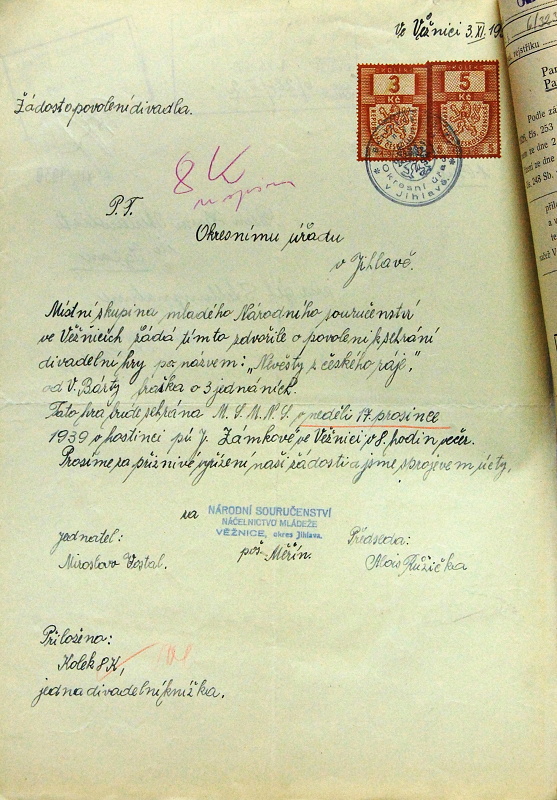 Ve Věžnici 3.XI.19
Žádost o povolení divadla.
KOLEK
3
Kč
KOLEK
5
Kč
Okresní úřad
v Jihlavě.
8 K
P. T.
Okresnímu úřadu
v Jihlavě.
Místní skupina mladého Národního souručenství
ve Věžnicích žádá tímto zdvořile o povolení k sehrání
divadelní hry po názvem: „Nevěsty z českého ráje",
od V. Bárty fraška o 3 jednáních.
Tato hra bude sehrána M.S.M.N.S. v neděli 17. prosince
1939 v hostinci pů J. Zámkové, ve Věžnici v 8. hodin večer.
Prosíme za příznivé vyřízení naší žádosti a jsme s projevem úcty.
za
NÁRODNÍ SOURUČENSTVÍ
NÁČELNICTVO MLÁDEŽE
VĚŽNICE, okres Jihlava.
poš. Měřín.
jednatel:
Miroslav Dostal.
Předseda:
Alois Růžička
Přiložena:
Kolek 8 K,
jedna divadelní knížka.
rejstříku
Par
Podle zá
čís. 253
em ze dne 2
ze dne
čís. 248 Sb.